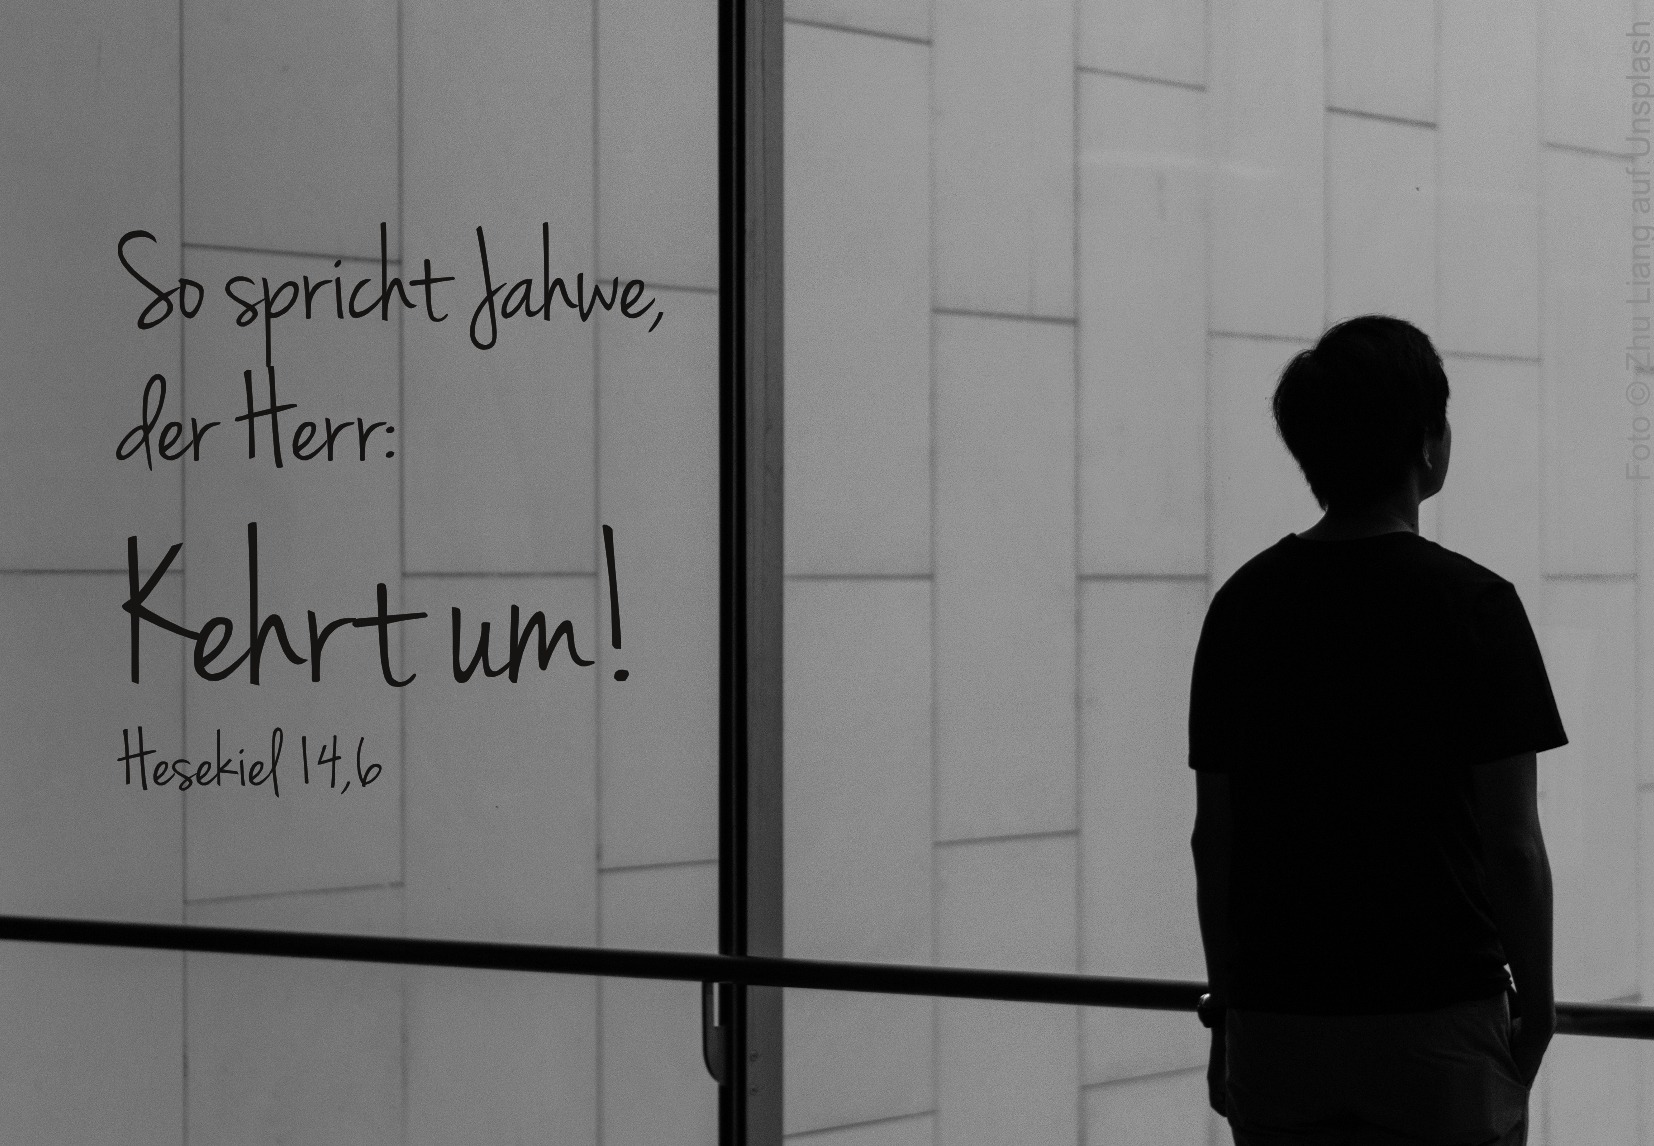 So spricht Jahwe,
der Herr:
Kehrt um!
Hesekiel 14,6
Foto © Zhu Liang auf Unsplash